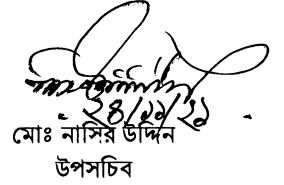 ২৪/১১/২১
মোঃ নাসির উদ্দিন
উপসচিব